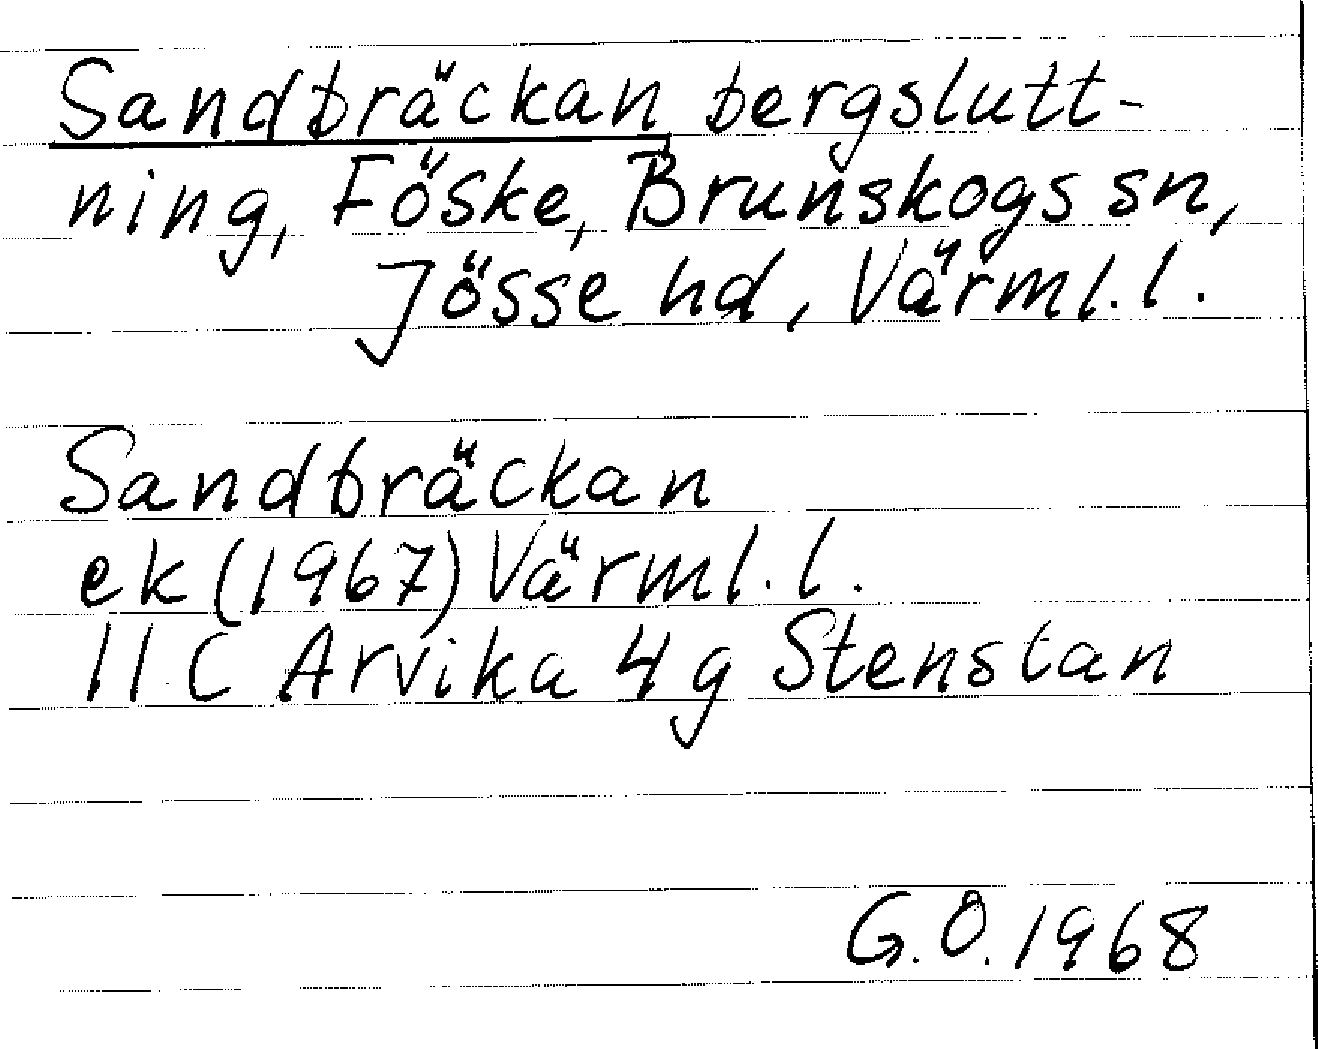 Sandbräckan, bergslutt-
ning, Föske, Brunskogs sn,
Jösse hd, Värml. l.
Sandbräckan
ek (1967) Värml. l.
11 C Arvika 4 g Stenstan
G.O. 1968